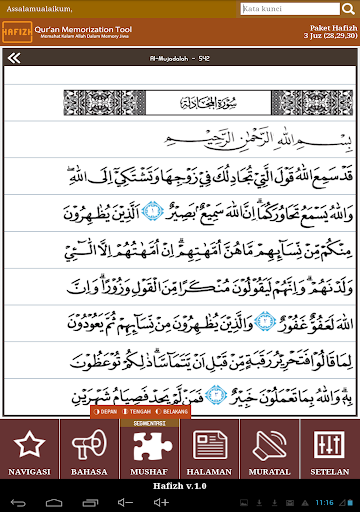 Assalamualaikum,
Kata kunci
HAFIZH
Qur'an Memorization Tool
Memahat Kalam Allah Dalam Memory Jiwa
Paket Hafizh
3 Juz (28,29,30)
Al-Mujadalah - 542
سُورَةُ المُجَادلَة
بِسْمِ اللهِ الرَّحْمٰنِ الرَّحِيْمِ
قَدْ سَمِعَ اللهُ قَوْلَ الَّتِيْ تُجَادِلُكَ فِيْ زَوْجِهَا وَتَشْتَكِيْٓ اِلَى اللهِ ۖ
وَاللهُ يَسْمَعُ تَحَاوُرَكُمَا ۗ اِنَّ اللهَ سَمِيْعٌ بَصِيْرٌ ١ اَلَّذِيْنَ يُظٰهِرُوْنَ
مِنْكُمْ مِّنْ نِّسَاۤىِٕهِمْ مَّا هُنَّ اُمَّهٰتِهِمْ ۗ اِنْ اُمَّهٰتُهُمْ اِلَّا الّٰۤـِٔيْ
وَلَدْنَهُمْ ۗ وَاِنَّهُمْ لَيَقُوْلُوْنَ مُنْكَرًا مِّنَ الْقَوْلِ وَزُوْرًا ۗ وَاِنَّ
اللهَ لَعَفُوٌّ غَفُوْرٌ ٢ وَالَّذِيْنَ يُظٰهِرُوْنَ مِنْ نِّسَاۤىِٕهِمْ ثُمَّ يَعُوْدُوْنَ
لِمَا قَالُوْا فَتَحْرِيْرُ رَقَبَةٍ مِّنْ قَبْلِ اَنْ يَّتَمَاۤسَّا ۗ ذٰلِكُمْ تُوْعَظُوْنَ
بِهٖ ۗ وَاللهُ بِمَا تَعْمَلُوْنَ خَبِيْرٌ ٣ فَمَنْ لَّمْ يَجِدْ فَصِيَامُ شَهْرَيْنِ
DEPAN TENGAH BELAKANG
SEGMENTASI
NAVIGASI BAHASA MUSHAF HALAMAN MURATAL SETELAN
Hafizh v.1.0
11:16